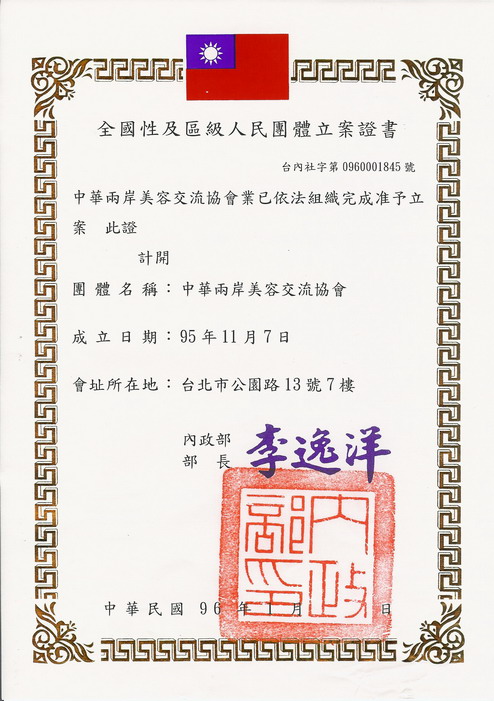 全國性及區級人民團體立案證書
台內社字第0960001845號
中華兩岸美容交流協會業已依法組織完成准予立
案　此證
計開
團體名稱：中華兩岸美容交流協會
成立日期：95年11月7日
會址所在地：台北市公園路13號7樓
內政部
部長 李逸洋
內政部印
中華民國 96 年 1 月 日